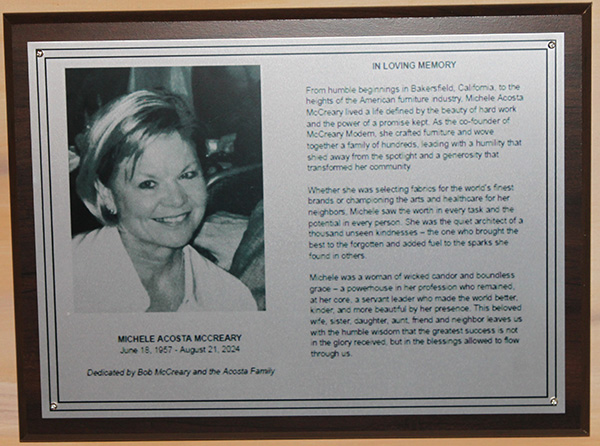 IN LOVING MEMORY
From humble beginnings in Bakersfield, California, to the
heights of the American furniture industry, Michele Acosta
McCreary lived a life defined by the beauty of hard work
and the power of a promise kept. As the co-founder of
McCreary Modern, she crafted furniture and wove
together a family of hundreds, leading with a humility that
shied away from the spotlight and a generosity that
transformed her community.
Whether she was selecting fabrics for the world's finest
brands or championing the arts and healthcare for her
neighbors, Michele saw the worth in every task and the
potential in every person. She was the quiet architect of a
thousand unseen kindnesses – the one who brought the
best to the forgotten and added fuel to the sparks she
found in others.
Michele was a woman of wicked candor and boundless
grace – a powerhouse in her profession who remained,
at her core, a servant leader who made the world better,
kinder, and more beautiful by her presence. This beloved
wife, sister, daughter, aunt, friend and neighbor leaves us
with the humble wisdom that the greatest success is not
in the glory received, but in the blessings allowed to flow
through us.
MICHELE ACOSTA MCCREARY
June 18, 1957 - August 21, 2024
Dedicated by Bob McCreary and the Acosta Family